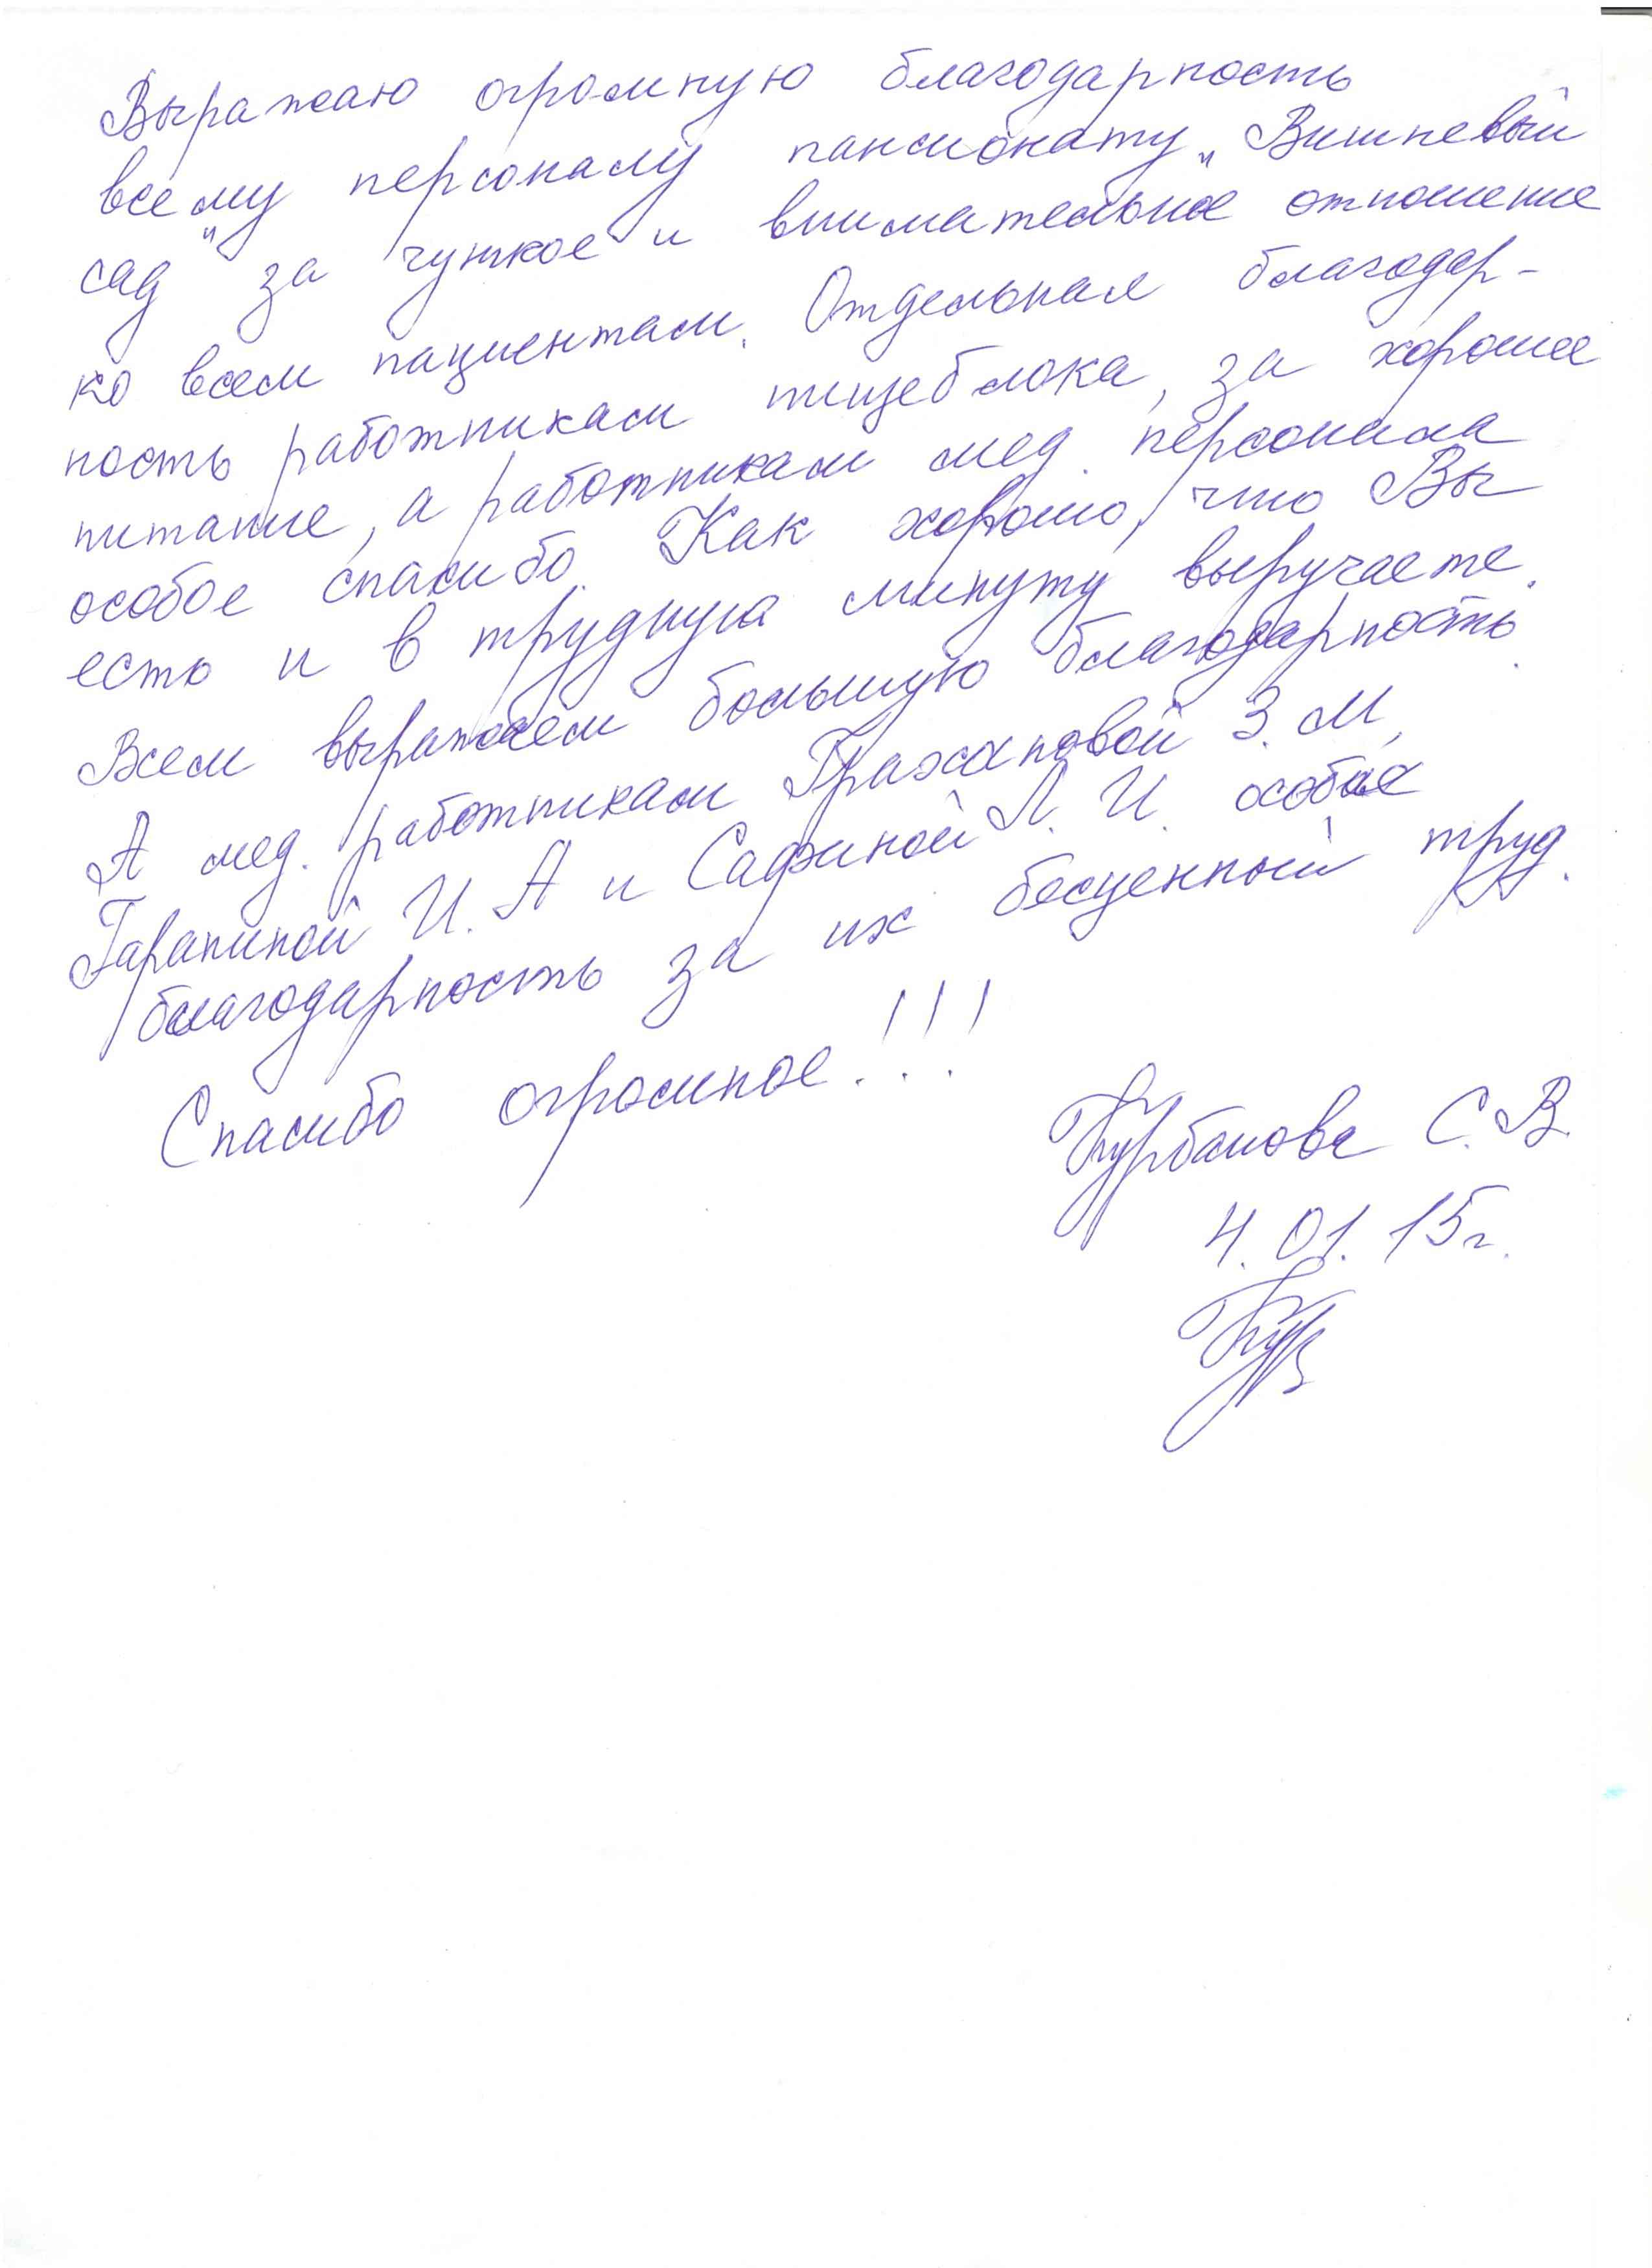 Выражаю огромную благодарность
всему персоналу пансионату „Вишневый
сад" за чуткое и внимательное отношение
ко всем пациентам. Отдельная благодар-
ность работникам пищеблока, за хорошее
питание, а работникам мед. персонала
особое спасибо. Как хорошо, что Вы
есть и в трудную минуту выручаете.
Всем выражаем большую благодарность.
А мед. работникам З. М,
Гараниной И. А и Сафиной Л. И. особая
благодарность за их бесценный труд.
Спасибо огромное!!!
Курбанова С. В.
4. 01. 15 г.